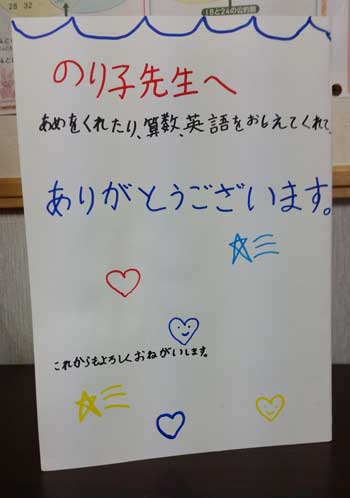 28 32
18と24の公約数
のり子先生へ
あめをくれたり、算数、英語をおしえてくれて、
ありがとうございます。
これからもよろしくおねがいします。